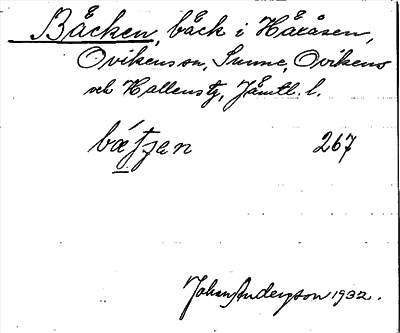 Bäcken, bäck i Håråsen,
Ovikens sn, Sunne, Ovikens
och Hallens tg, Jämtl. l.
267
Johan Anderson 1932.